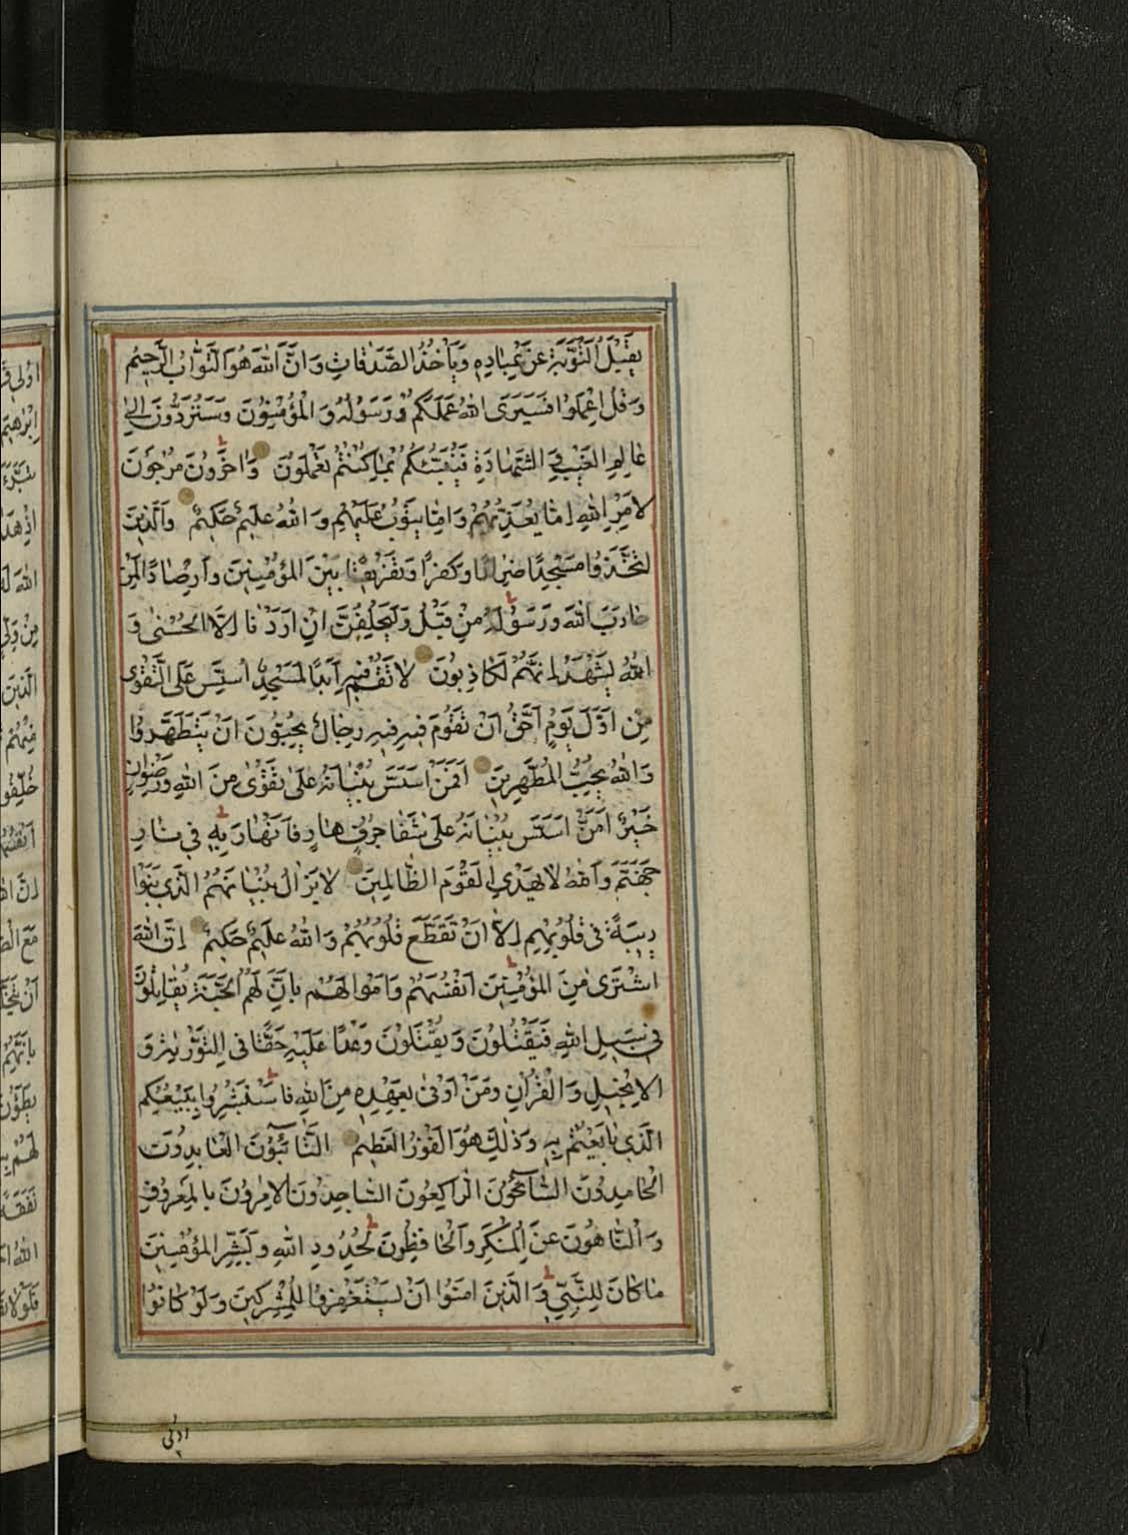 يَقْبَلُ التَّوْبَةَ عَنْ عِبَادِهِ وَيَأْخُذُ الصَّدَقَاتِ وَاَنَّ اللّٰهَ هُوَ التَّوَّابُ الرَّحِيمُ
وَقُلِ اعْمَلُوا فَسَيَرَى اللّٰهُ عَمَلَكُمْ وَرَسُولُهُ وَالْمُؤْمِنُونَ وَسَتُرَدُّونَ اِلٰى
عَالِمِ الْغَيْبِ وَالشَّهَادَةِ فَيُنَبِّئُكُمْ بِمَا كُنْتُمْ تَعْمَلُونَ وَاٰخَرُونَ مُرْجَوْنَ
لِاَمْرِ اللّٰهِ اِمَّا يُعَذِّبُهُمْ وَاِمَّا يَتُوبُ عَلَيْهِمْ وَاللّٰهُ عَلِيمٌ حَكِيمٌ وَالَّذِينَ
اتَّخَذُوا مَسْجِدًا ضِرَارًا وَكُفْرًا وَتَفْرِيقًا بَيْنَ الْمُؤْمِنِينَ وَاِرْصَادًا لِمَنْ
حَارَبَ اللّٰهَ وَرَسُولَهُ مِنْ قَبْلُ وَلَيَحْلِفُنَّ اِنْ اَرَدْنَا اِلَّا الْحُسْنٰى وَ
اللّٰهُ يَشْهَدُ اِنَّهُمْ لَكَاذِبُونَ لَا تَقُمْ فِيهِ اَبَدًا لَمَسْجِدٌ اُسِّسَ عَلَى التَّقْوٰى
مِنْ اَوَّلِ يَوْمٍ اَحَقُّ اَنْ تَقُومَ فِيهِ فِيهِ رِجَالٌ يُحِبُّونَ اَنْ يَتَطَهَّرُوا
وَاللّٰهُ يُحِبُّ الْمُطَّهِّرِينَ اَفَمَنْ اَسَّسَ بُنْيَانَهُ عَلٰى تَقْوٰى مِنَ اللّٰهِ وَرِضْوَانٍ
خَيْرٌ اَمْ مَنْ اَسَّسَ بُنْيَانَهُ عَلٰى شَفَا جُرُفٍ هَارٍ فَانْهَارَ بِهِ فِي نَارِ
جَهَنَّمَ وَاللّٰهُ لَا يَهْدِي الْقَوْمَ الظَّالِمِينَ لَا يَزَالُ بُنْيَانُهُمُ الَّذِي بَنَوْا
رِيبَةً فِي قُلُوبِهِمْ اِلَّا اَنْ تَقَطَّعَ قُلُوبُهُمْ وَاللّٰهُ عَلِيمٌ حَكِيمٌ اِنَّ اللّٰهَ
اشْتَرٰى مِنَ الْمُؤْمِنِينَ اَنْفُسَهُمْ وَاَمْوَالَهُمْ بِاَنَّ لَهُمُ الْجَنَّةَ يُقَاتِلُونَ
فِي سَبِيلِ اللّٰهِ فَيَقْتُلُونَ وَيُقْتَلُونَ وَعْدًا عَلَيْهِ حَقًّا فِي التَّوْرٰيةِ وَ
الْاِنْجِيلِ وَالْقُرْاٰنِ وَمَنْ اَوْفٰى بِعَهْدِهِ مِنَ اللّٰهِ فَاسْتَبْشِرُوا بِبَيْعِكُمُ
الَّذِي بَايَعْتُمْ بِهِ وَذٰلِكَ هُوَ الْفَوْزُ الْعَظِيمُ التَّائِبُونَ الْعَابِدُونَ
الْحَامِدُونَ السَّائِحُونَ الرَّاكِعُونَ السَّاجِدُونَ الْاٰمِرُونَ بِالْمَعْرُوفِ
وَالنَّاهُونَ عَنِ الْمُنْكَرِ وَالْحَافِظُونَ لِحُدُودِ اللّٰهِ وَبَشِّرِ الْمُؤْمِنِينَ
مَا كَانَ لِلنَّبِيِّ وَالَّذِينَ اٰمَنُوا اَنْ يَسْتَغْفِرُوا لِلْمُشْرِكِينَ وَلَوْ كَانُوا
اُولِي